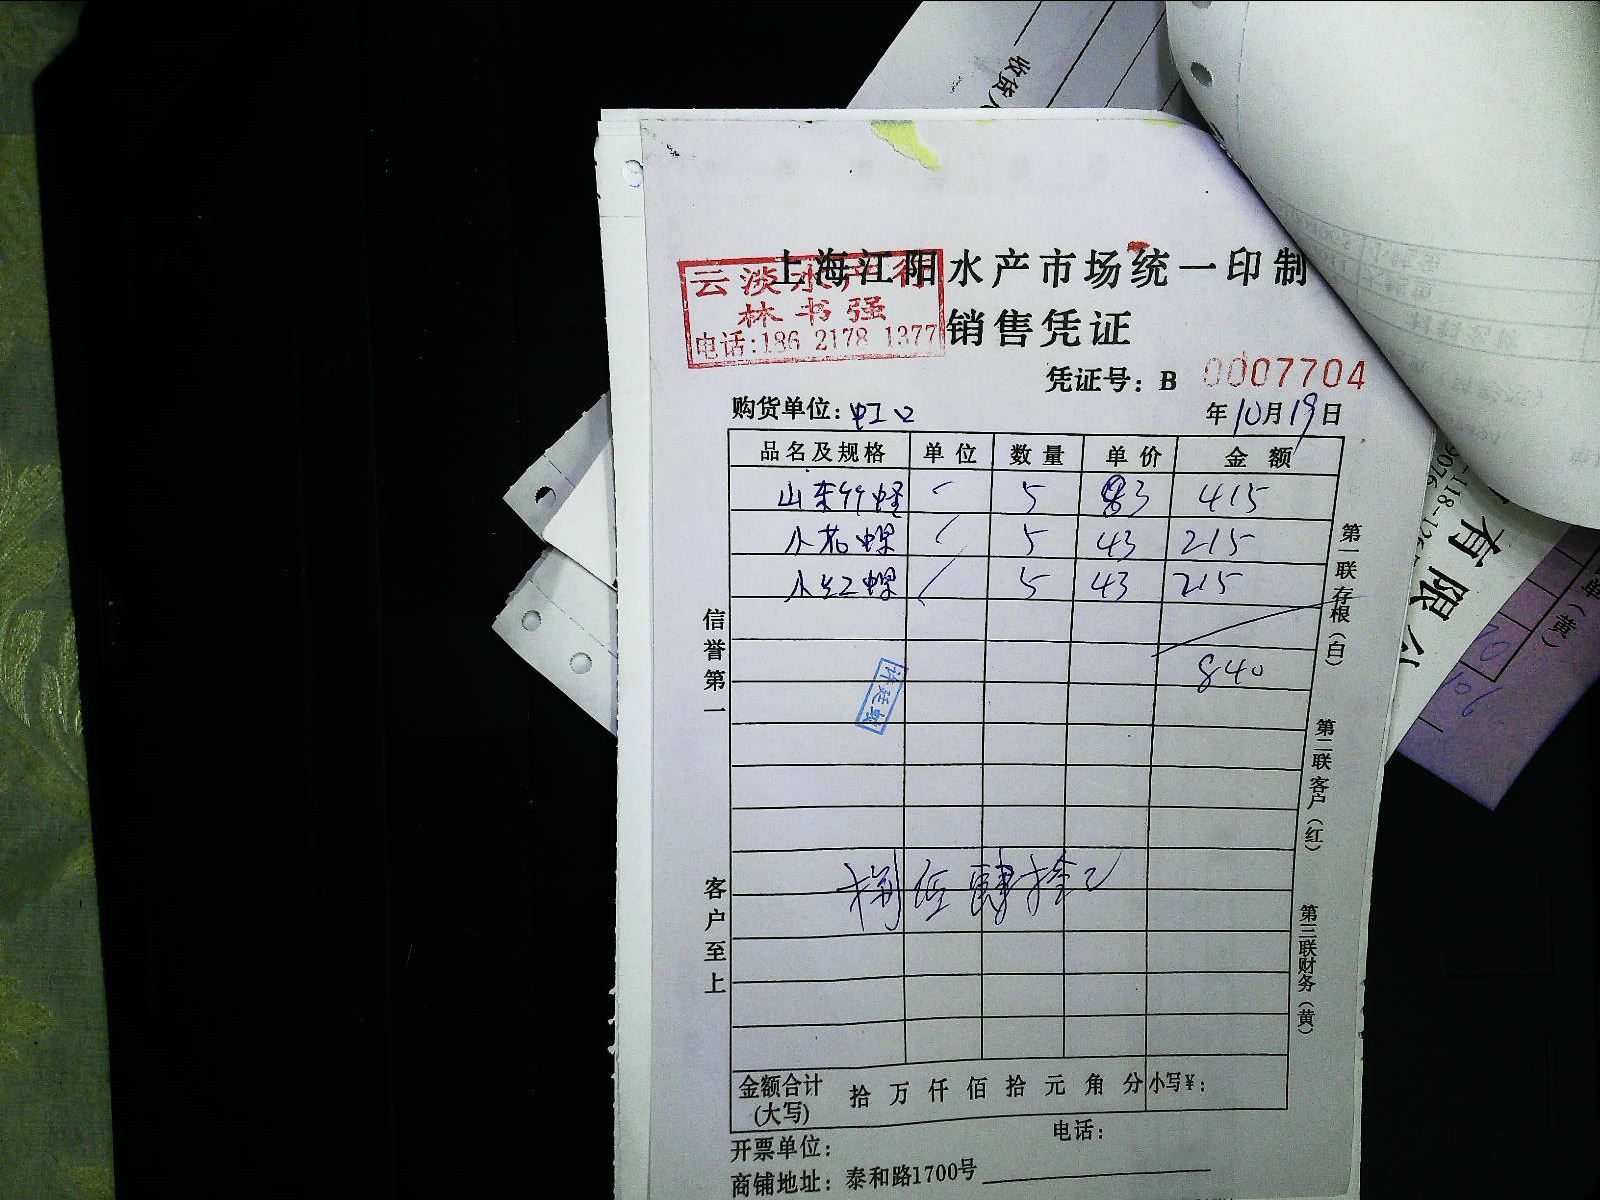 收货人
上海江阳水产市场统一印制
云淡水产行
林书强
电话:186 2178 1377
销售凭证
凭证号：B 0007704
购货单位：虹口 年10月19日
品名及规格 单位 数量 单价 金额
山东竹蛏 5 83 415
小花螺 5 43 215
小红螺 5 43 215
840
捌佰肆拾元
信誉第一
客户至上
第一联存根（白）
第二联客户（红）
第三联财务（黄）
金额合计(大写) 拾 万 仟 佰 拾 元 角 分 小写¥：
开票单位： 电话：
商铺地址：泰和路1700号
有限公
（黄）